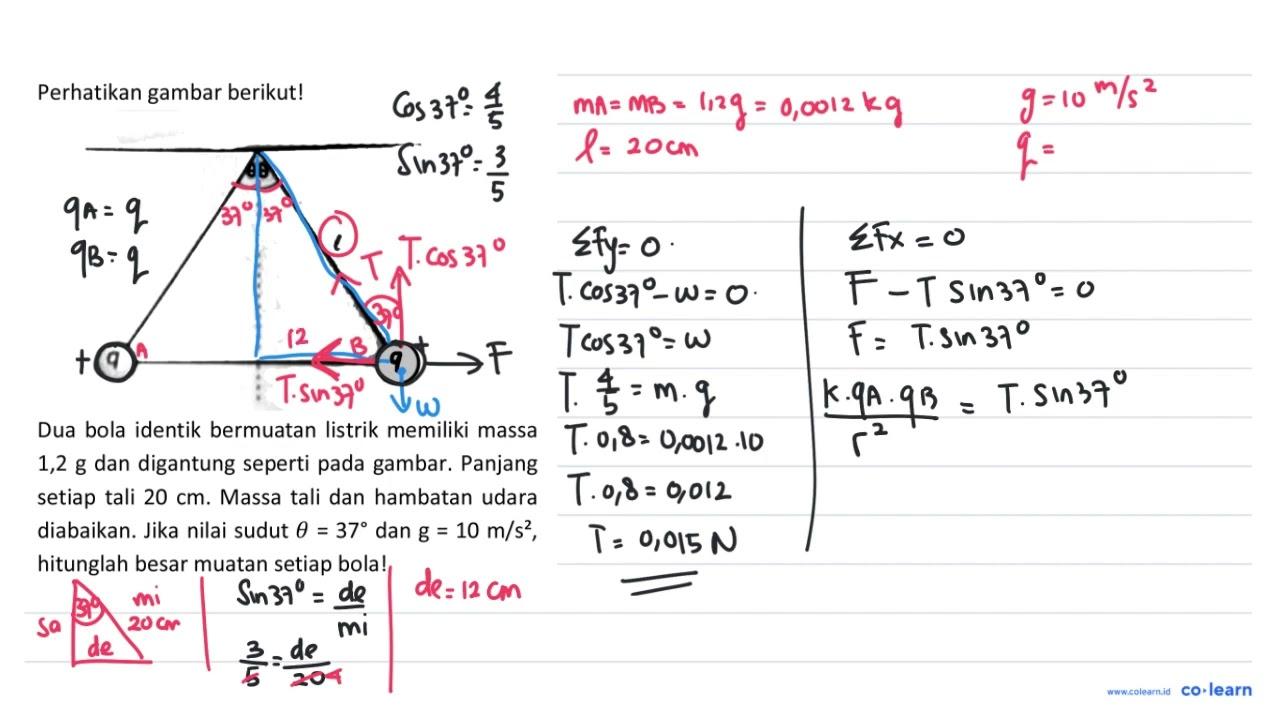 Perhatikan gambar berikut!
Cos 37° = 4/5
Sin 37° = 3/5
qA = q
qB = q
θ θ
37° 37°
l
T
T. Cos 37°
37°
12
+ q A
B q +
F
T. Sin 37°
w
Dua bola identik bermuatan listrik memiliki massa
1,2 g dan digantung seperti pada gambar. Panjang
setiap tali 20 cm. Massa tali dan hambatan udara
diabaikan. Jika nilai sudut θ = 37° dan g = 10 m/s²,
hitunglah besar muatan setiap bola!
37°
sa
mi
20 cm
de
Sin 37° = de/mi
3/5 = de/20 4
de = 12 cm
mA = mB = 1,2 g = 0,0012 kg
l = 20 cm
g = 10 m/s²
q =
ΣFy = 0
T. cos 37° – w = 0
T cos 37° = w
T. 4/5 = m. g
T. 0,8 = 0,0012 . 10
T. 0,8 = 0,012
T = 0,015 N
ΣFx = 0
F – T Sin 37° = 0
F = T. Sin 37°
k. qA. qB / r² = T. Sin 37°
www.colearn.id co·learn